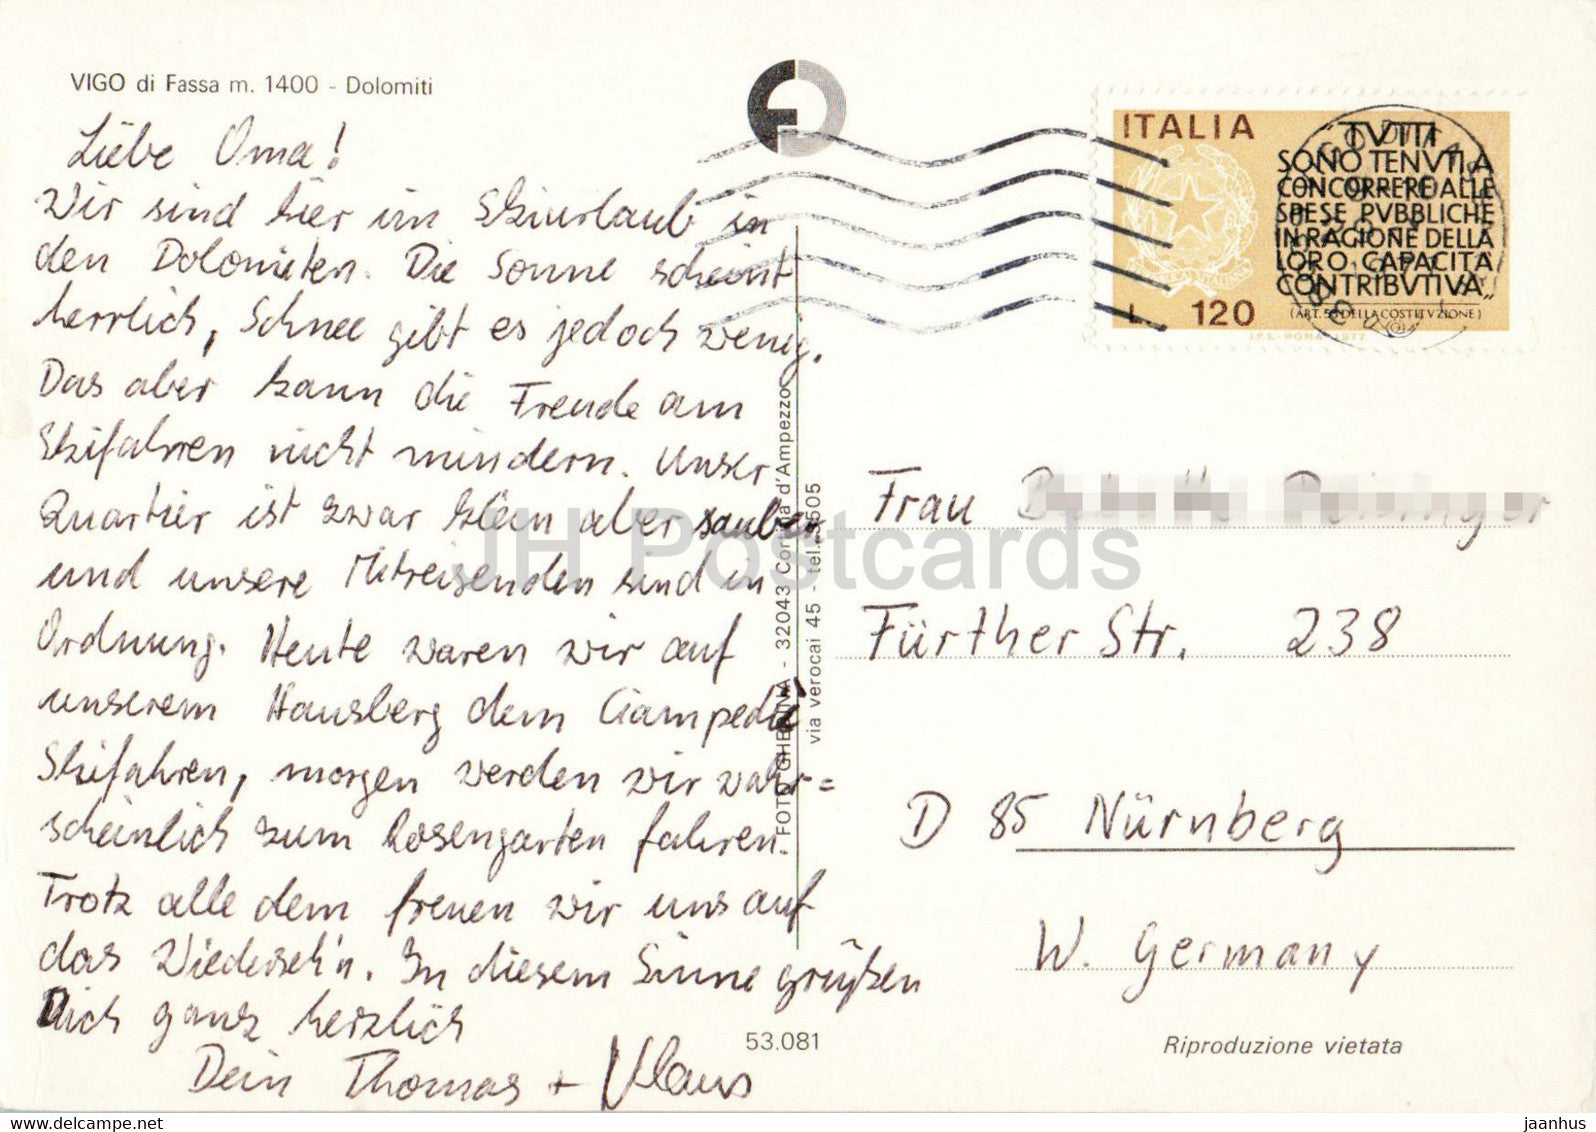 VIGO di Fassa m. 1400 - Dolomiti
Liebe Oma!
Wir sind hier im Skiurlaub in
den Dolomiten. Die Sonne scheint
herrlich, Schnee gibt es jedoch wenig.
Das aber kann die Freude am
Skifahren nicht mindern. Unser
Quartier ist zwar klein aber sauber
und unsere Mitreisenden sind in
Ordnung. Heute waren wir auf
unserem Hausberg dem Ciampedie
Skifahren, morgen werden wir wahr=
scheinlich zum Rosengarten fahren.
Trotz alle dem freuen wir uns auf
das Wiederseh'n. In diesem Sinne grüßen
Dich ganz herzlich
Dein Thomas + Klaus
FOTO GHEDINA - 32043 Cortina d'Ampezzo
via verocai 45 - tel.
53.081
ITALIA
"TVTTI
SONO TENVTI A
CONCORRERE ALLE
SPESE PVBBLICHE
IN RAGIONE DELLA
LORO CAPACITA
CONTRIBVTIVA„
(ART. 53 DELLA COSTITVZIONE)
L. 120
I.P.S.-ROMA-1977
Frau
Further Str. 238
D 85 Nürnberg
W. Germany
Riproduzione vietata
JH Postcards
delcampe.net
jaanhus